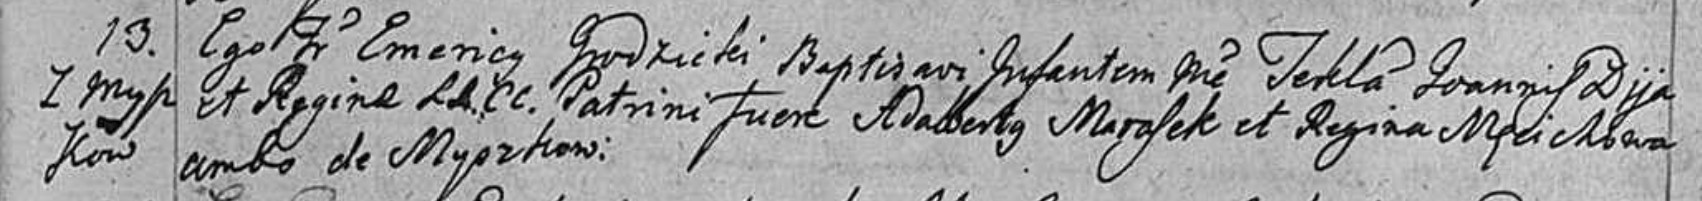 13. Ego Fr Emericy Grodzicki Baptisavi Infantem Nē Teklā Joannis Dyja
Z Mysz et Reginæ LL. CC. Patrini fuere Adalberty Marasek et Regina
kow ambo de Myszkow: